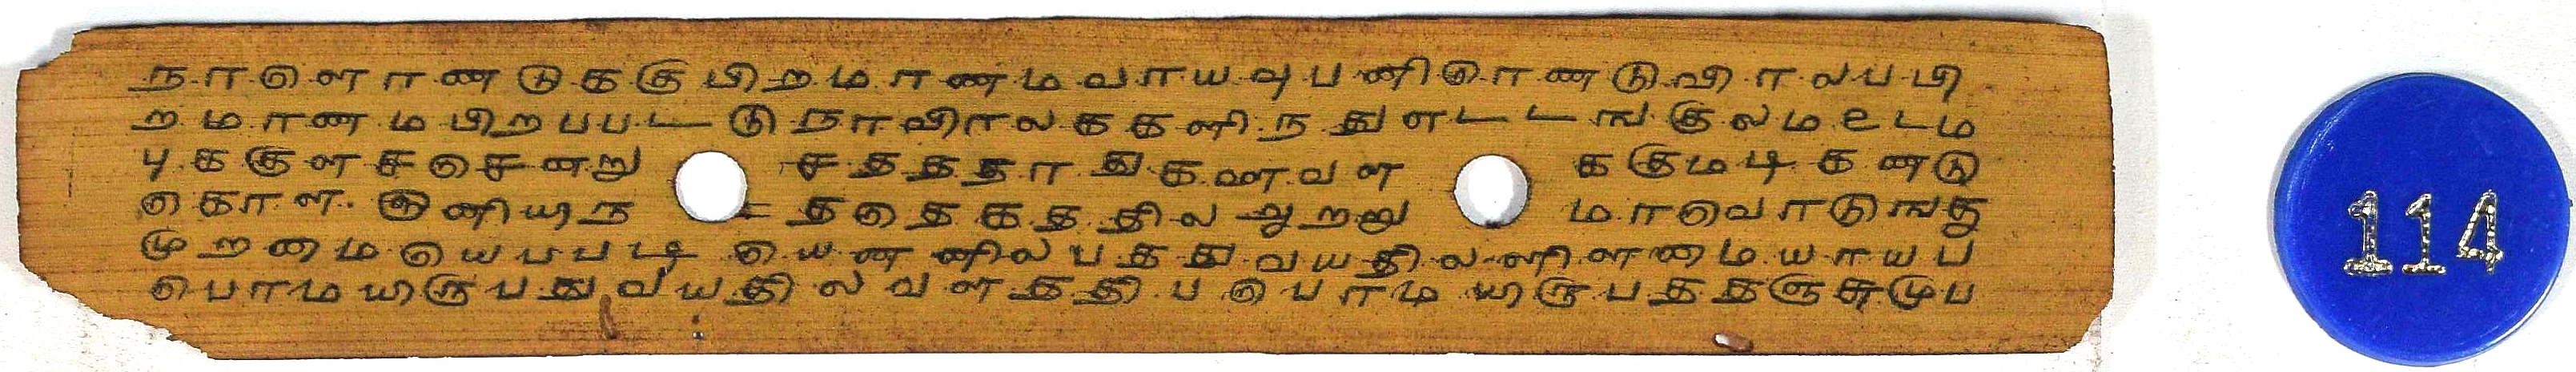 நாளொண டுககு பிறமாணம வாயவு பனிரொண டுவிரலப பி
றமாணம பிறபபட டு நாவிரலககளிநது எடடஙகுலம உடம
புககுள சசெனறு சததநதாதுகணவள ககுமடி கணடு
கொள இனியிந த தெகததில ஆறறு மாவொடுஙகு
முறமை யெபபடி யெனனில பதது வயதில னினமையாயப
பொம யிருபது வயதில வளததி ப பொம யிருபததஞசுமுப
114